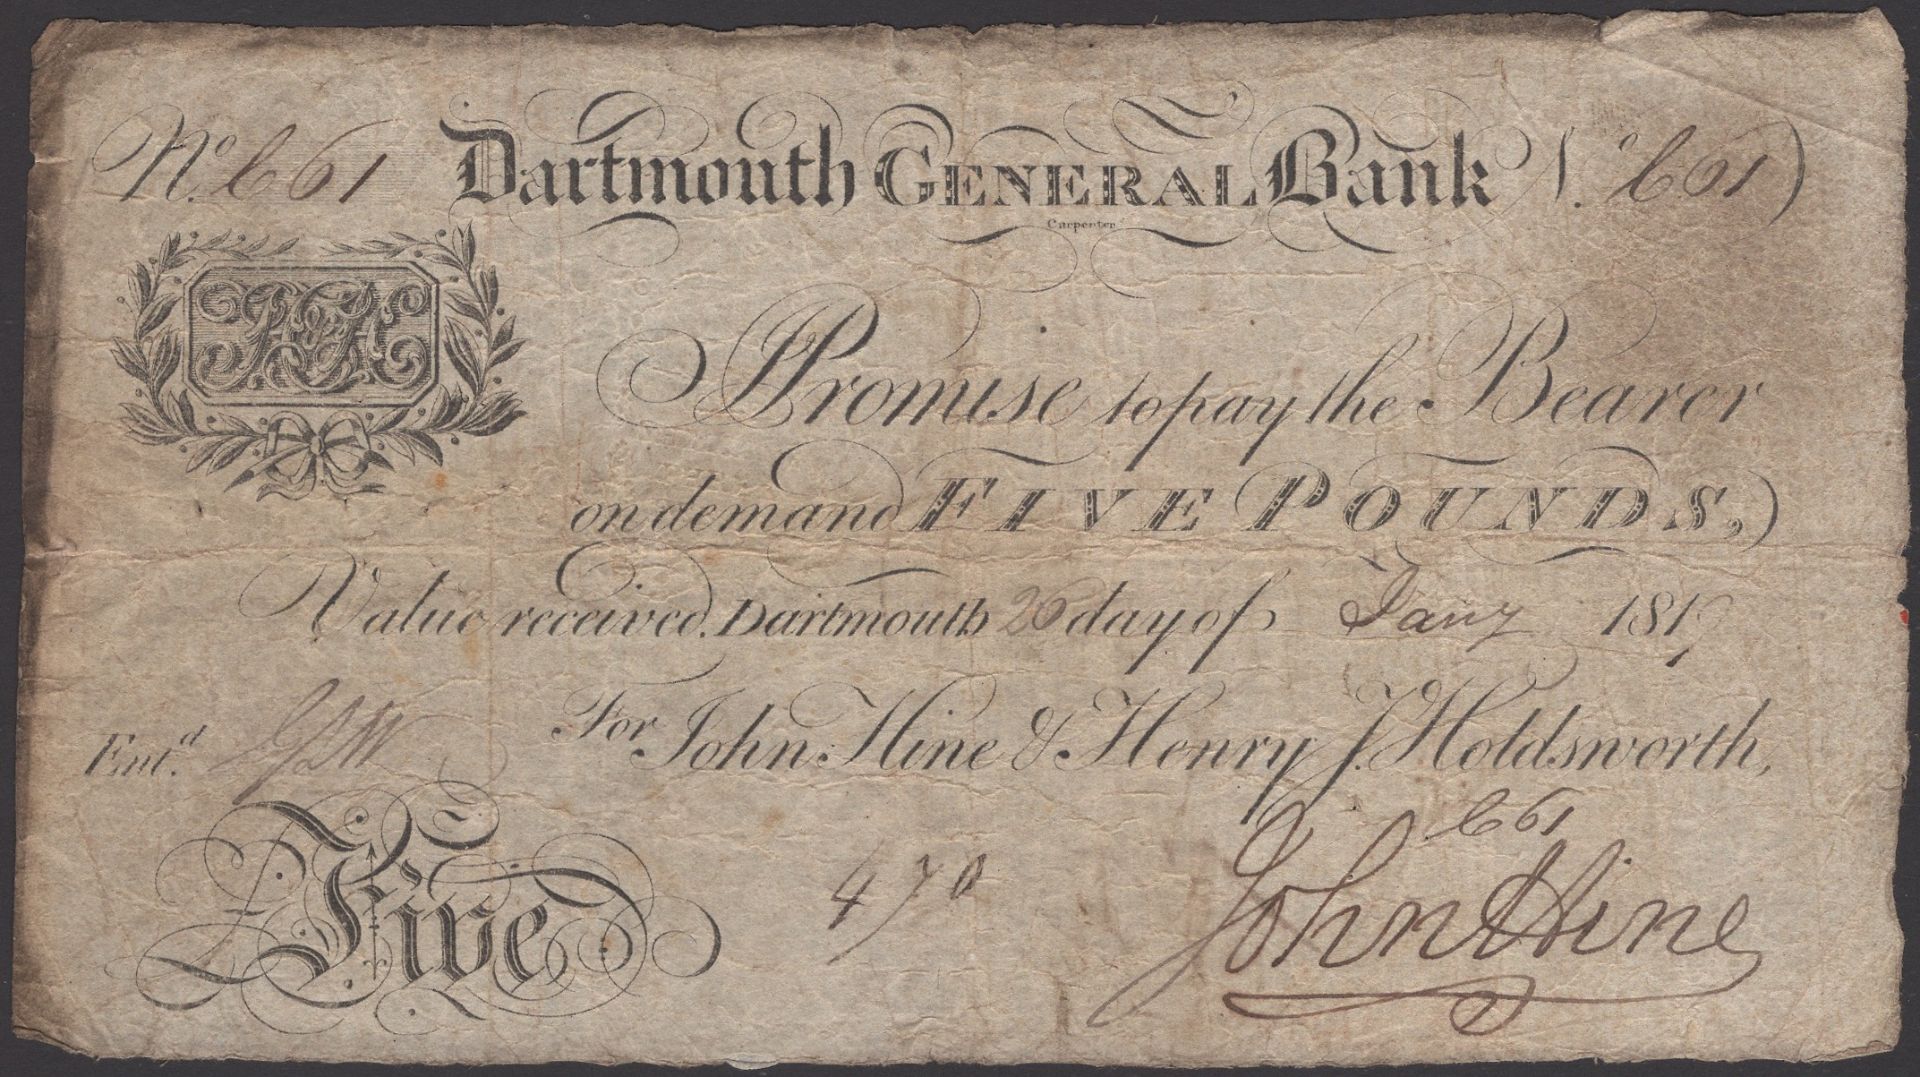 No. 661 Dartmouth GENERAL Bank No. 661
Carpenter
H&H
I Promise to pay the Bearer
on demand FIVE POUNDS,
Value received. Dartmouth 26 day of Jany 1819
For John Hine & Henry J. Holdsworth,
Entd.
661
£ Five
470
John Hine